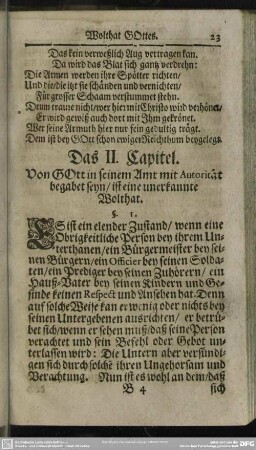 Wolthat GOttes. 23
Das kein verweßlich Aug vertragen kan.
Da wird das Blat sich gantz verdrehn:
Die Armen werden ihre Spötter richten/
Und die/die itzt sie schänden und vernichten/
Für grosser Schaam verstummet stehn.
Denn traue nicht/wer hier mit Christo wird verhönet/
Er wird gewiß auch dort mit Ihm gekrönet.
Wer seine Armuth hier nur fein gedultig trägt.
Dem ist bey GOtt schon ewiger Reichthum beygelegt.
Das II. Capitel.
Von GOtt in seinem Amt mit Autorität
begabet seyn/ ist eine unerkannte
Wolthat.
§. 1.
ES ist ein elender Zustand/ wenn eine
Obrigkeitliche Person bey ihrem Un-
terthanen/ein Bürgermeister bey sei-
nen Bürgern/ein Officier bey seinen Solda-
ten/ein Prediger bey seinen Zuhörern/ ein
Hauß-Vater bey seinen Kindern und Ge-
sinde keinen Respect und Ansehen hat. Denn
auf solche Weise kan er wenig oder nichts bey
seinen Untergebenen ausrichten/ er betrü-
bet sich/wenn er sehen muß/daß seine Person
verachtet und sein Befehl oder Gebot un-
terlassen wird: Die Untern aber versündi-
gen sich durch solche ihren Ungehorsam und
Verachtung. Nun ist es wohl an dem/daß
B 4 sich